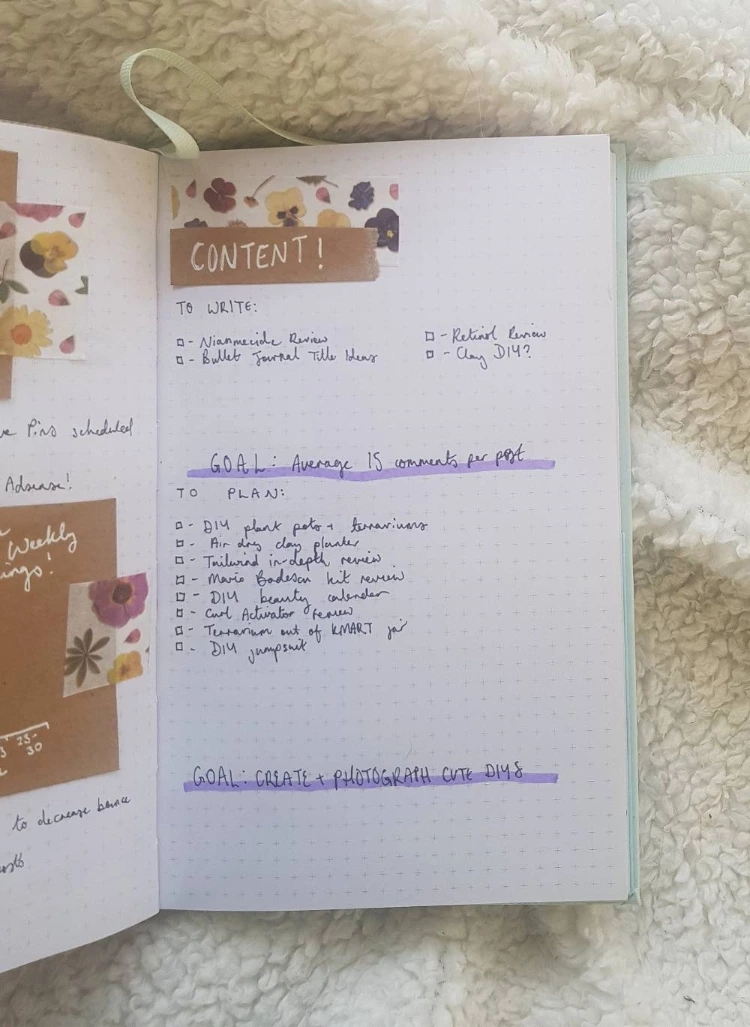 CONTENT!
TO WRITE:
- Nianmecide Review
- Bullet Journal Title Ideas
- Retinol Review
- Clay DIY?
GOAL: Average 15 comments per post
TO PLAN:
- DIY plant pots + terrariums
- Air dry clay planter
- Tailwind in-depth review
- Mario Badescu kit review
- DIY beauty calendar
- Curl Activator review
- Terrarium out of KMART jar
- DIY jumpsuit
GOAL: CREATE + PHOTOGRAPH CUTE DIYS
Pins scheduled
Adsense!
Weekly
25-
30
to decrease bounce